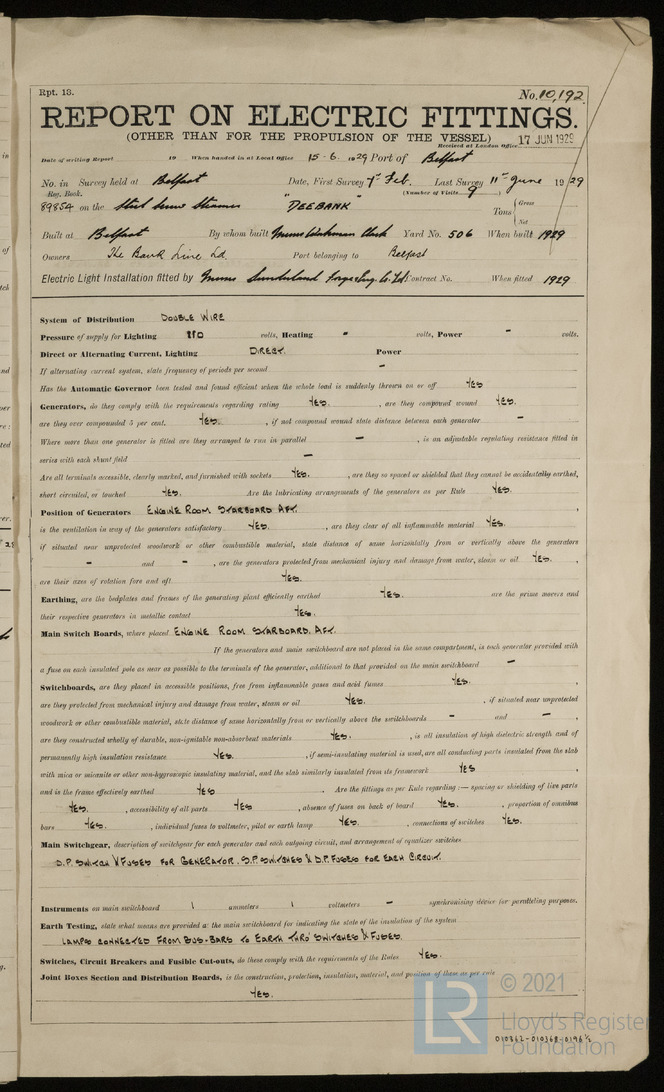 Rpt. 13.
No. 10,192
REPORT ON ELECTRIC FITTINGS.
(OTHER THAN FOR THE PROPULSION OF THE VESSEL)
Received at London Office 17 JUN 1929
Date of writing Report 19 When handed in at Local Office 15-6-1929 Port of Belfast
No. in Survey held at Belfast Date, First Survey 7th Feb. Last Survey 11th June 1929
Reg. Book. (Number of Visits 9 )
89854 on the Steel Screw Steamer "DEEBANK" Tons { Gross
Net
Built at Belfast By whom built Messrs Workman Clark Yard No. 506 When built 1929
Owners The Bank Line Ld. Port belonging to Belfast
Electric Light Installation fitted by Messrs Sunderland Forge & Eng. Co. Ld. Contract No. When fitted 1929
System of Distribution DOUBLE WIRE
Pressure of supply for Lighting 110 volts, Heating - volts, Power - volts.
Direct or Alternating Current, Lighting DIRECT. Power
If alternating current system, state frequency of periods per second -
Has the Automatic Governor been tested and found efficient when the whole load is suddenly thrown on or off YES
Generators, do they comply with the requirements regarding rating YES. , are they compound wound YES.
are they over compounded 5 per cent. YES. , if not compound wound state distance between each generator -
Where more than one generator is fitted are they arranged to run in parallel - , is an adjustable regulating resistance fitted in
series with each shunt field -
Are all terminals accessible, clearly marked, and furnished with sockets YES. , are they so spaced or shielded that they cannot be accidentally earthed,
short circuited, or touched YES. Are the lubricating arrangements of the generators as per Rule YES.
Position of Generators ENGINE ROOM STARBOARD AFT. ,
is the ventilation in way of the generators satisfactory YES. , are they clear of all inflammable material YES.
if situated near unprotected woodwork or other combustible material, state distance of same horizontally from or vertically above the generators
- and - , are the generators protected from mechanical injury and damage from water, steam or oil YES. ,
are their axes of rotation fore and aft YES.
Earthing, are the bedplates and frames of the generating plant efficiently earthed YES. are the prime movers and
their respective generators in metallic contact YES.
Main Switch Boards, where placed ENGINE ROOM STARBOARD. AFT.
If the generators and main switchboard are not placed in the same compartment, is each generator provided with
a fuse on each insulated pole as near as possible to the terminals of the generator, additional to that provided on the main switchboard -
Switchboards, are they placed in accessible positions, free from inflammable gases and acid fumes YES. ,
are they protected from mechanical injury and damage from water, steam or oil YES. , if situated near unprotected
woodwork or other combustible material, state distance of same horizontally from or vertically above the switchboards - and -
are they constructed wholly of durable, non-ignitable non-absorbent materials YES. , is all insulation of high dielectric strength and of
permanently high insulation resistance YES. , if semi-insulating material is used, are all conducting parts insulated from the slab
with mica or micanite or other non-hygroscopic insulating material, and the slab similarly insulated from its framework YES ,
and is the frame effectively earthed YES . Are the fittings as per Rule regarding :— spacing or shielding of live parts
YES. , accessibility of all parts YES , absence of fuses on back of board YES. , proportion of omnibus
bars YES. , individual fuses to voltmeter, pilot or earth lamp YES. , connections of switches YES.
Main Switchgear, description of switchgear for each generator and each outgoing circuit, and arrangement of equalizer switches
D.P. SWITCH & FUSES FOR GENERATOR. D.P. SWITCHES & D.P. FUSES FOR EACH CIRCUIT.
Instruments on main switchboard 1 ammeters 1 voltmeters - synchronising device for paralleling purposes.
Earth Testing, state what means are provided at the main switchboard for indicating the state of the insulation of the system
LAMPS CONNECTED FROM BUS-BARS TO EARTH THRO' SWITCHES & FUSES.
Switches, Circuit Breakers and Fusible Cut-outs, do these comply with the requirements of the Rules YES.
Joint Boxes Section and Distribution Boards, is the construction, protection, insulation, material, and position of these as per rule
YES.
LR
© 2021
Lloyd's Register
Foundation
010362-010368-0196 ½